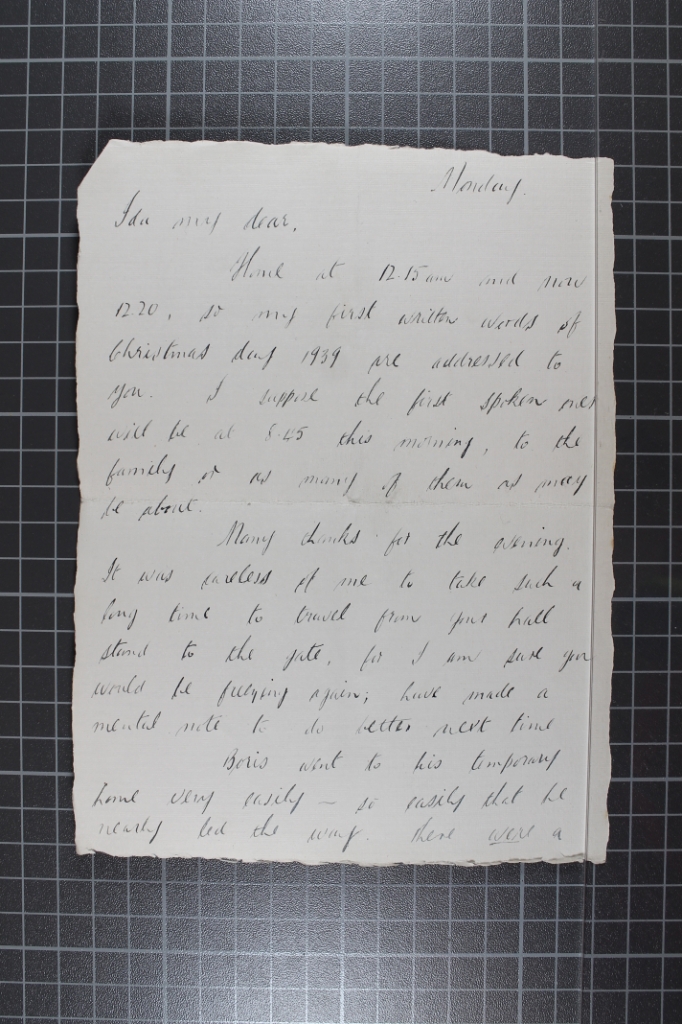 Monday.
Ida my dear,
Home at 12.15am and now
12.20, so my first written words of
Christmas day 1939 are addressed to
you. I suppose the first spoken ones
will be at 8.45 this morning, to the
family or as many of them as may
be about.
Many thanks for the evening.
It was careless of me to take such a
long time to travel from your hall
stand to the gate, for I am sure you
would be freezing again; have made a
mental note to do better next time
Boris went to his temporary
home very easily – so easily that he
nearly led the way. There were a